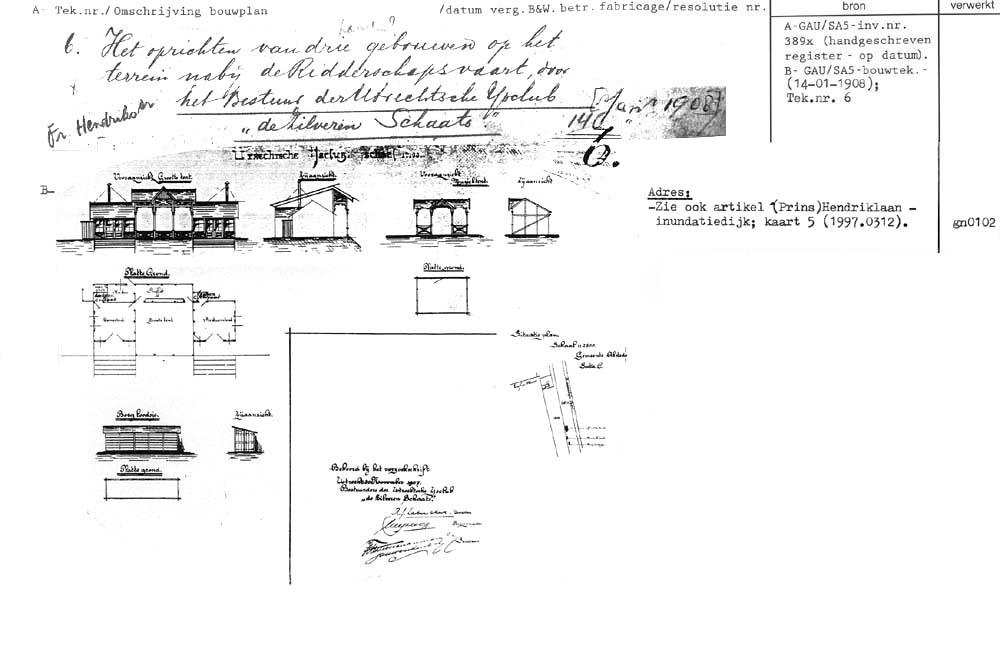 A- Tek.nr./Omschrijving bouwplan /datum verg.B&W.betr.fabricage/resolutie nr. bron verwerkt
6. Het oprichten van drie gebouwen op het
terrein nabij de Ridderschapsvaart, door
het Bestuur der Utrechtsche IJsclub
"de Zilveren Schaats"
1908
140
6.
Fr. Hendrik
A-GAU/SA5-inv.nr.
389x (handgeschreven
register - op datum).
B- GAU/SA5-bouwtek.-
(14-01-1908);
Tek.nr. 6
B-
Adres:
-Zie ook artikel (Prins)Hendriklaan -
inundatiedijk; kaart 5 (1997.0312).
gn0102
Vooraanzicht Groote tent.
Zijaanzicht.
Vooraanzicht
Muziektent.
Zijaanzicht
Platte Grond.
Platte grond.
Buffet
Groote tent
Situatie plan
Schaal
Gemeente
Sectie C.
Berg loodsje.
Zijaanzicht.
Platte grond.
Behoord bij het verzoekschrift
Utrecht November 1907.
Bestuurders der Utrechtsche IJsclub
"de Zilveren Schaats".